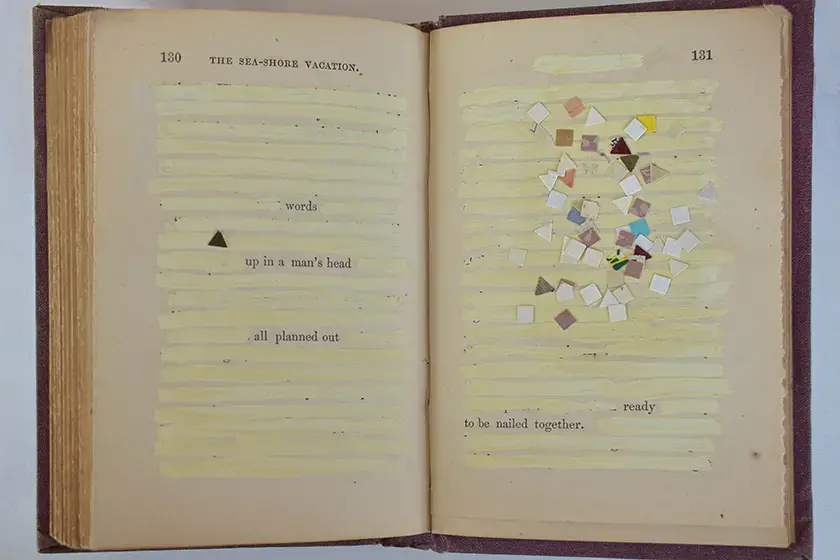 130 THE SEA-SHORE VACATION.
words
up in a man's head
all planned out
131
ready
to be nailed together.